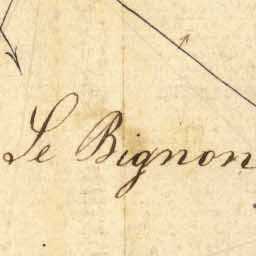 Le Bignon